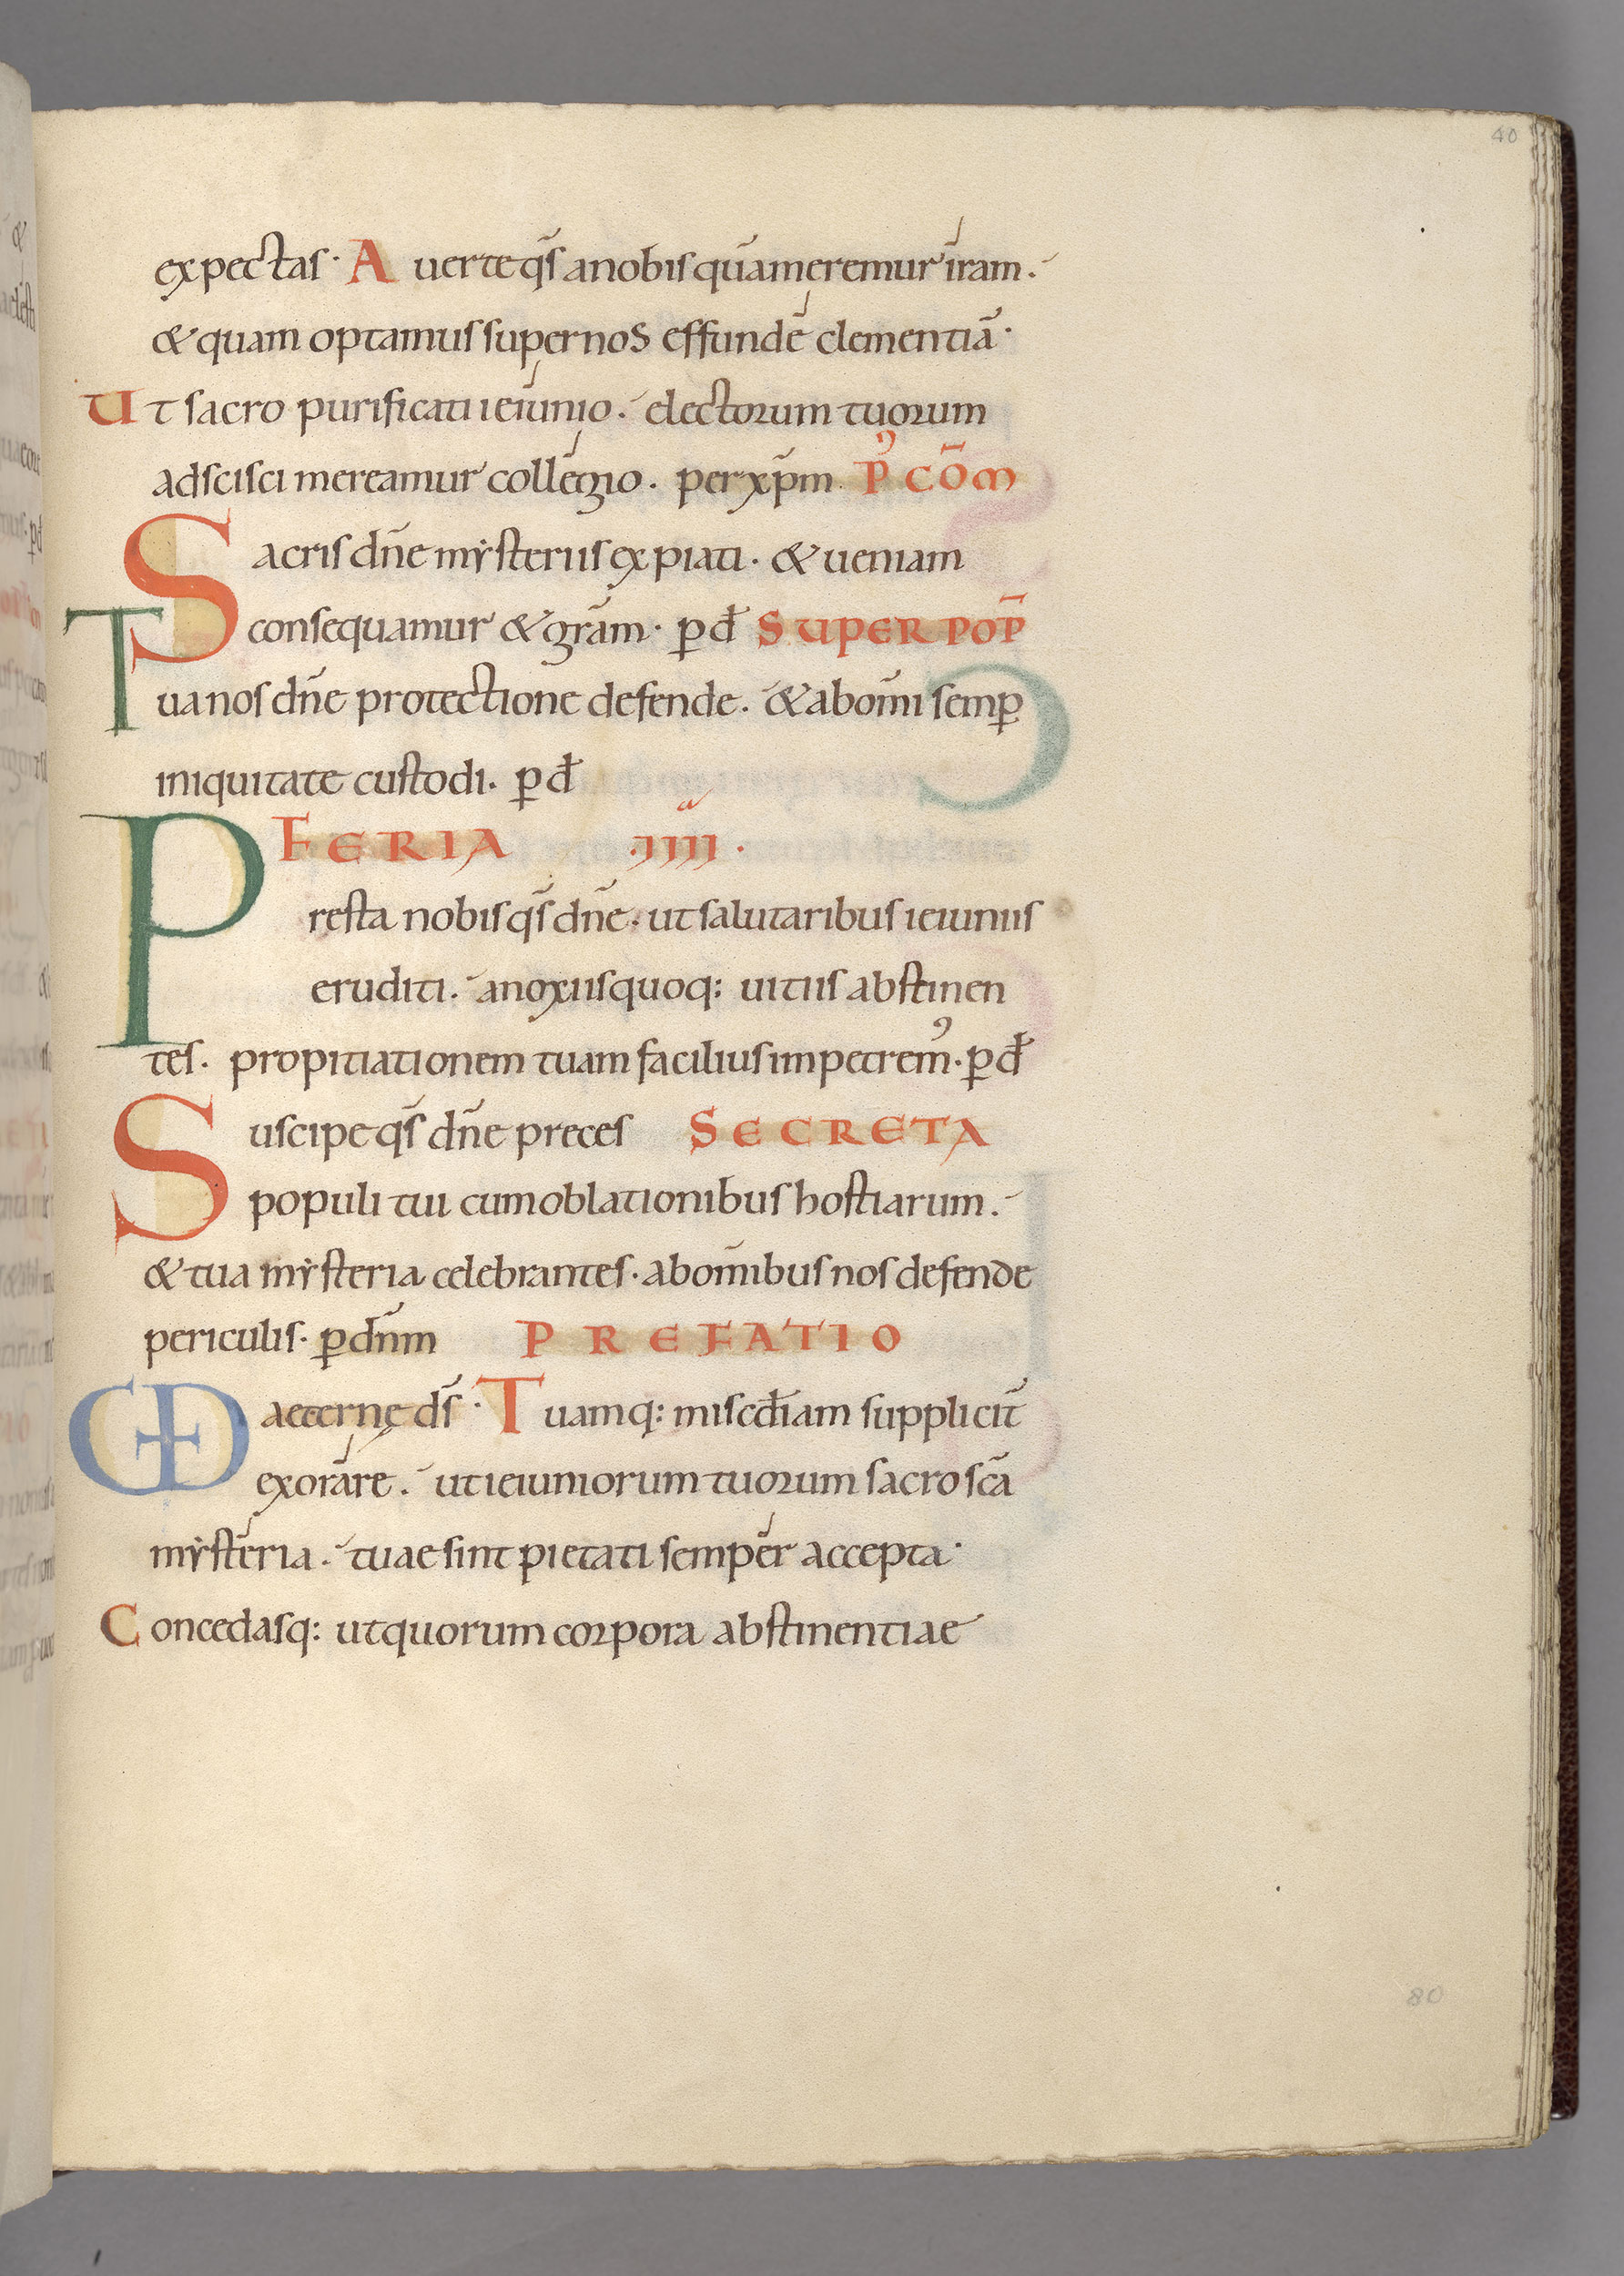 40
expectas · Auerte qs̄ a nobis quā meremur iram .
& quam optamus super nos effunde clementiā ·
Ut sacro purificati ieiunio . electorum tuorum
adscisci mereamur collegio . per xp̄m . P᾽ CŌM
Sacris dn̄e mẏsteriis expiati . & ueniam
consequamur & grām · p̱ đ SUPER POP̄
Tua nos dn̄e protectione defende . & ab om̄i semp̱
iniquitate custodi . p̱ đ
FERIA · IIIIᵃ ·
Presta nobis qs̄ dn̄e . ut salutaribus ieiuniis
eruditi . a noxiis quoq: uitiis abstinen
tes . propitiationem tuam facilius impetrem᾽ . p̱ đ
Suscipe qs̄ dn̄e preces SECRETA
populi tui cum oblationibus hostiarum .
& tua mẏsteria celebrantes . ab om̄ibus nos defende
periculis . p̱ dn̄m PREFATIO
VD aeternę ds̄ · Tuamq: misc̄điam suppliciт̄
exorare . ut ieiuniorum tuorum sacrosc̄a
mẏsteria . tuae sint pietati semper accepta ·
Concedasq: ut quorum corpora abstinentiae
80